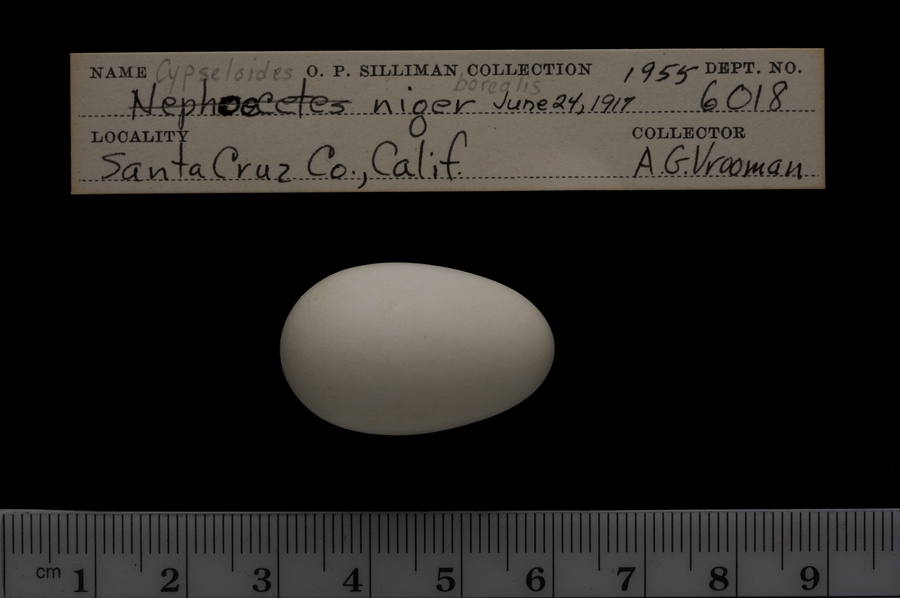 NAME Cypseloides O. P. SILLIMAN COLLECTION 1955 DEPT. NO.
Nephoecetes niger borealis June 24, 1917 6018
LOCALITY COLLECTOR
Santa Cruz Co., Calif. A.G.Vrooman
cm 1 2 3 4 5 6 7 8 9